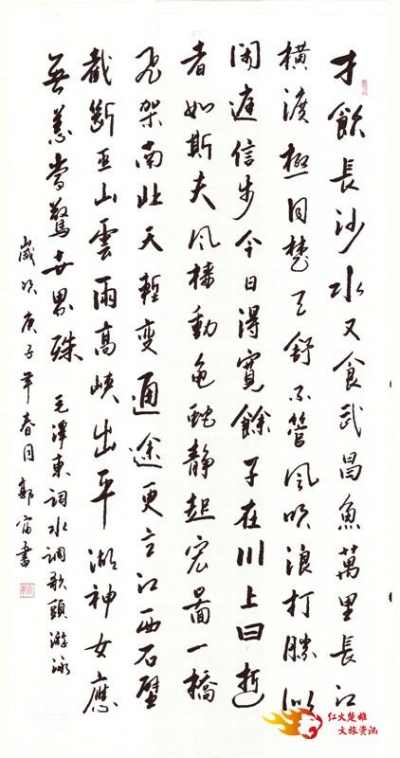 才飲長沙水又食武昌魚萬里長江
橫渡極目楚天舒不管風吹浪打勝似
閑庭信步今日得寬餘子在川上曰逝
者如斯夫風檣動龜蛇靜起宏圖一橋
飛架南北天塹變通途更立江西石壁
截斷巫山雲雨高峽出平湖神女應
無恙當驚世界殊 毛澤東詞水調歌頭游泳
歲次庚子年春月郭書
红火楚雄
文旅资讯